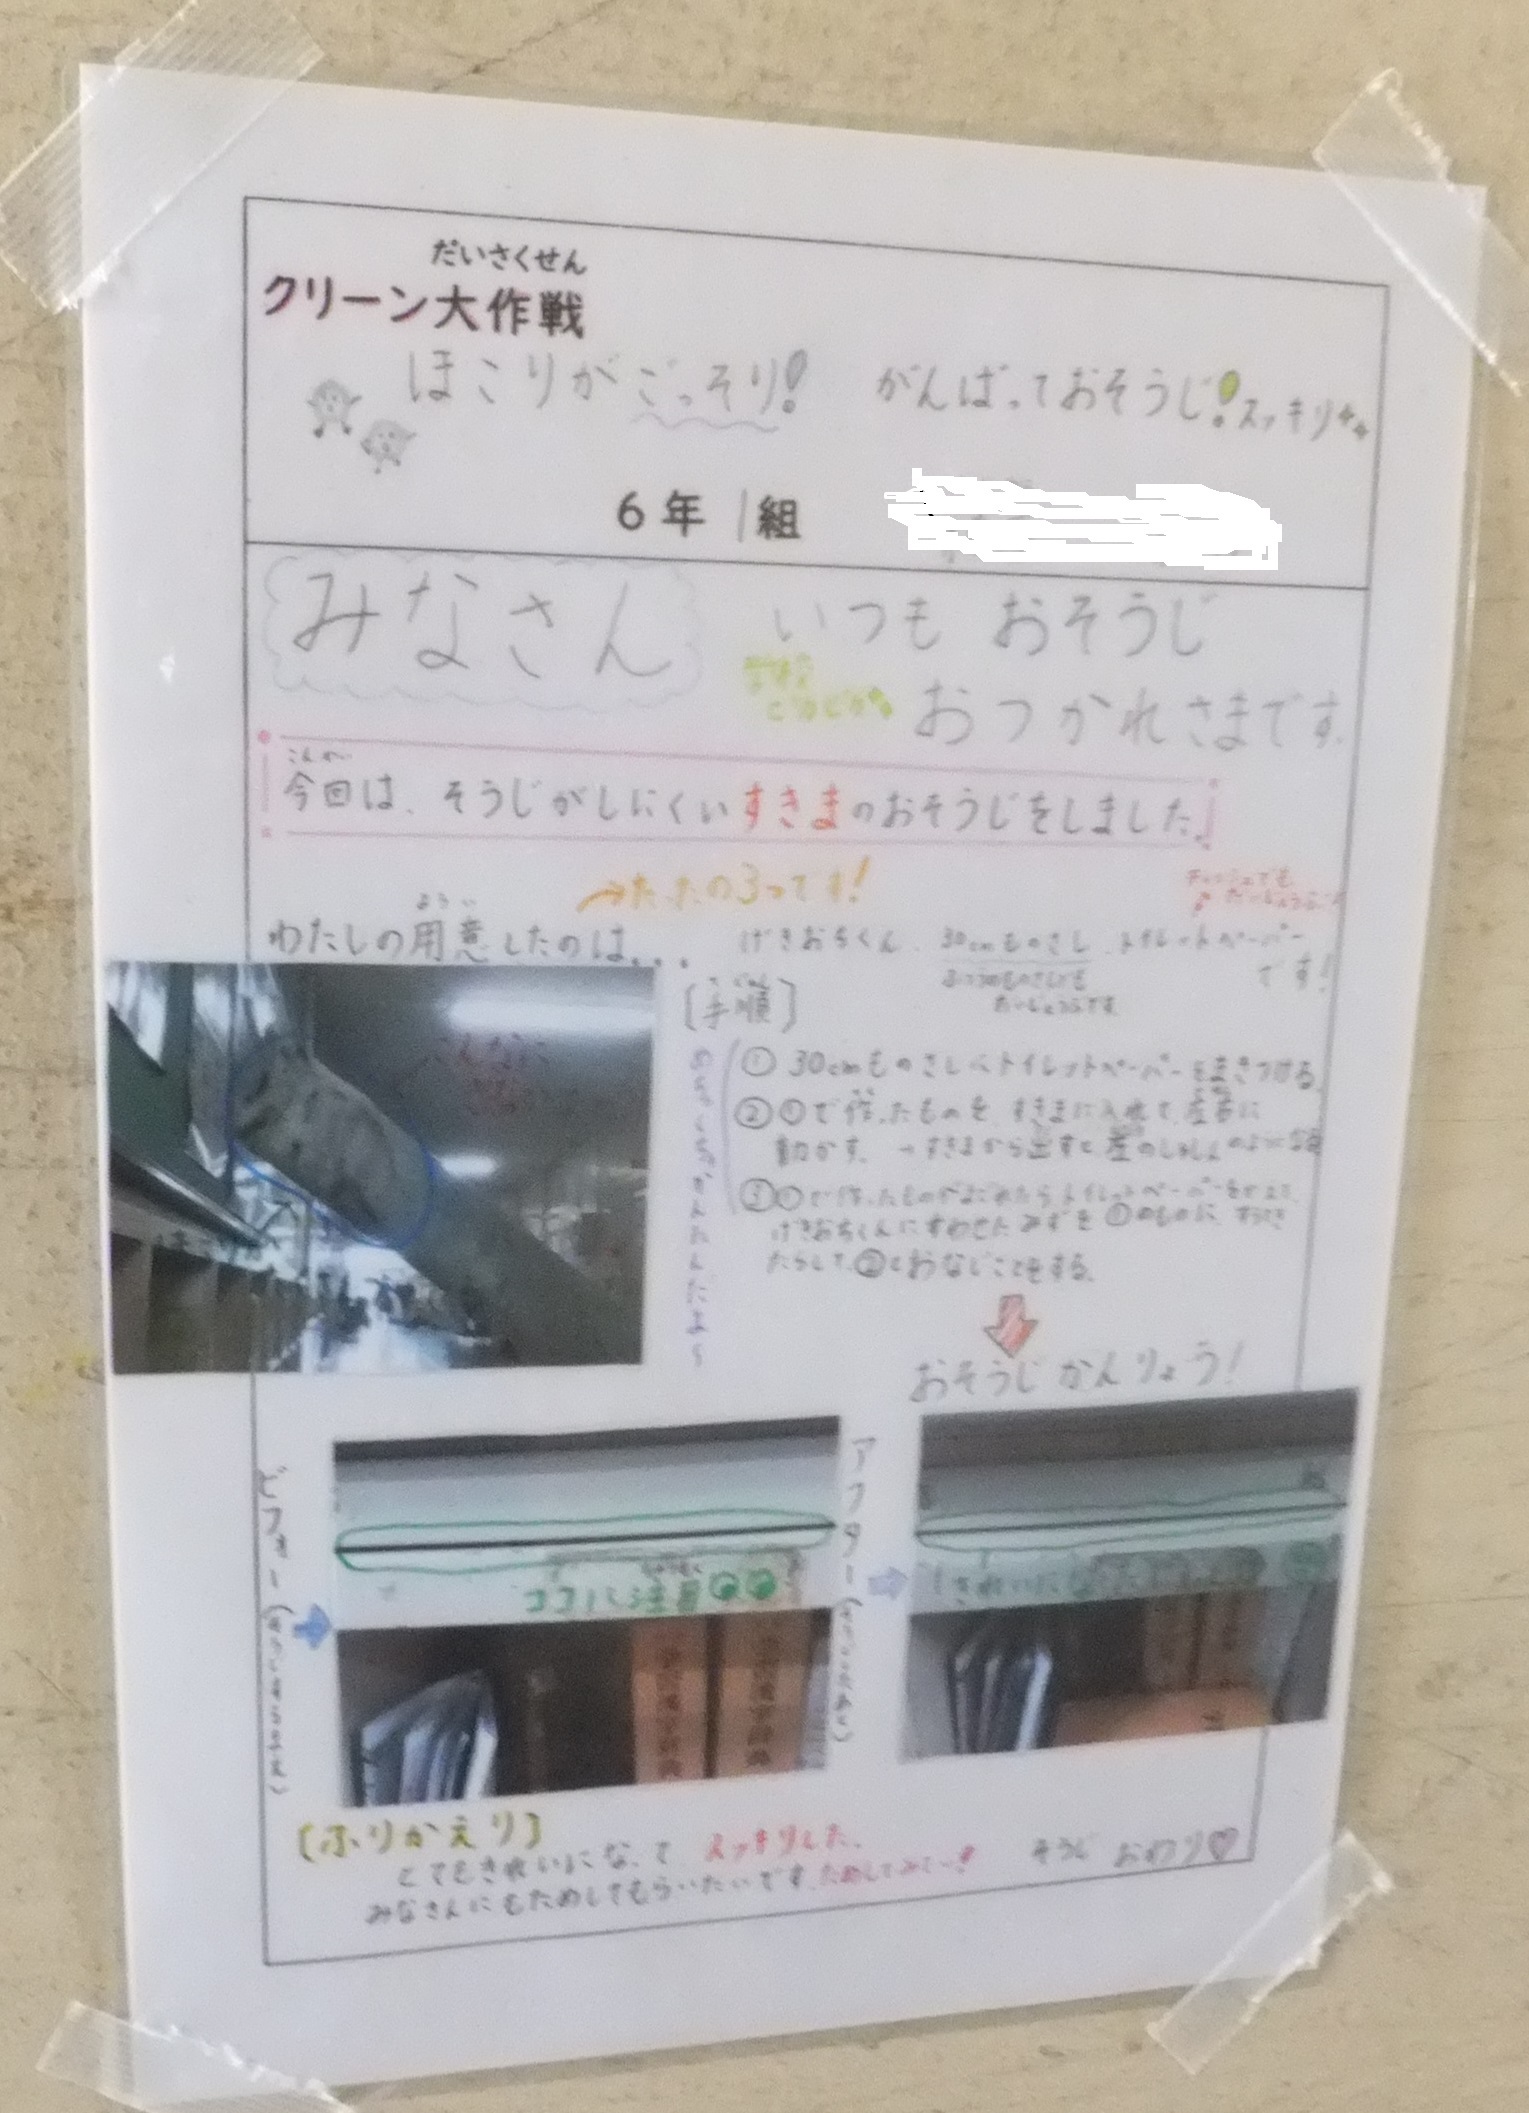 だいさくせん
クリーン大作戦
ほこりがごっそり! がんばっておそうじ!スッキリ
6年1組
みなさん いつも おそうじ
おつかれさまです。
こんかい
今回は、そうじがしにくいすきまのおそうじをしました。
→たったの3つです!
ようい
わたしの用意したのは...
げきおちくん、30cmものさし、トイレットペーパー
です!
ふつうのものさしでも
だいじょうぶです。
[手順]
①30cmものさしへトイレットペーパーをまきつける。
②①で作ったものを、すきまに入れて、左右に
動かす。→すきまから出すと
③①で作ったものがよごれたらトイレットペーパーを
げきおちくんにすわせたみずを①のものに
たらして、②とおなじことをする。
おそうじかんりょう!
こんなに
ビフォー(
ココに注目
アフター(
きれいに
[ふりかえり]
とてもきれいになって スッキリした。
みなさんにもためしてもらいたいです。ためしてみてー!
そうじ おわり♡